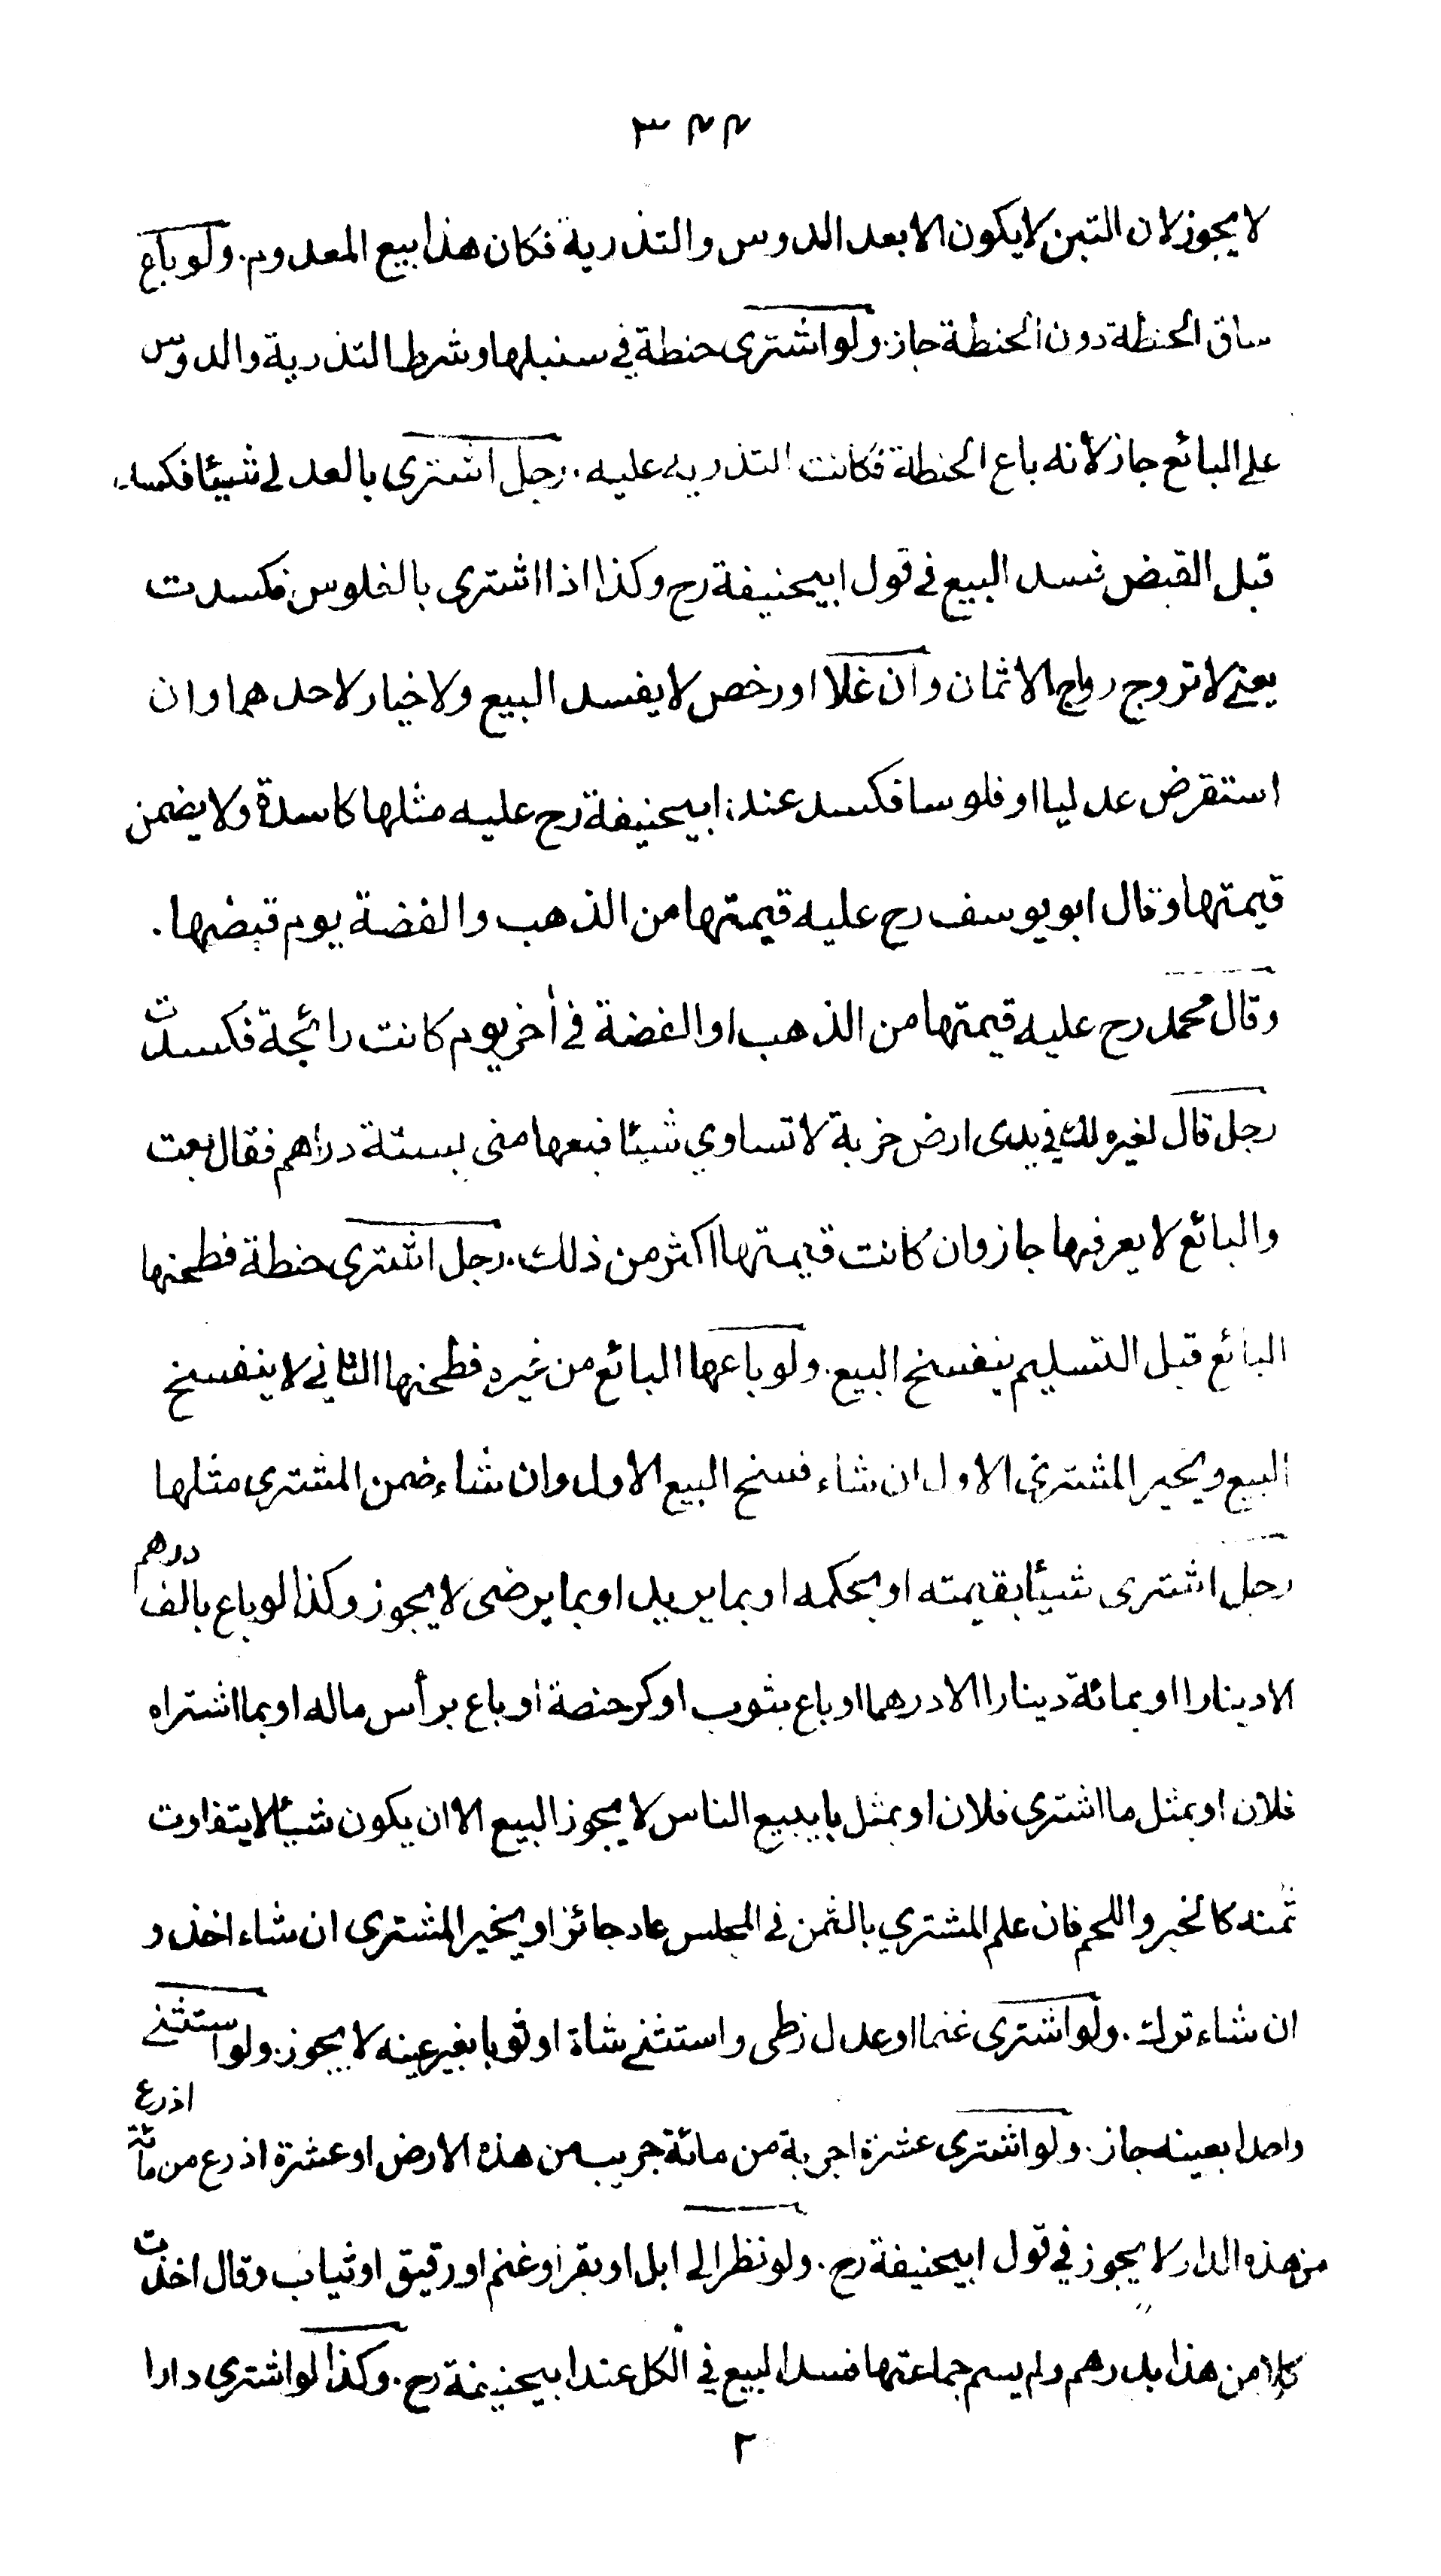 ٣٤٤
لا يجوز لان التبن لا يكون الا بعد الدوس والتذرية فكان هذا بيع المعدوم. ولو باع
ساق الحنطة دون الحنطة جاز. ولو اشترى حنطة في سنبلها وشرط التذرية والدوس
على البائع جاز لأنه باع الحنطة فكانت التذرية عليه. رجل اشترى بالعدلي شيئا فكسد
قبل القبض فسد البيع في قول ابيحنيفة رح وكذا اذا اشترى بالفلوس فكسدت
يعني لا تروج رواج الاثمان وان غلا او رخص لا يفسد البيع ولا خيار لاحدهما وان
استقرض عدليا او فلوسا فكسد عند ابيحنيفة رح عليه مثلها كاسدة ولا يضمن
قيمتها وقال ابو يوسف رح عليه قيمتها من الذهب والفضة يوم قبضها.
وقال محمد رح عليه قيمتها من الذهب او الفضة في أخر يوم كانت رائجة فكسدت
رجل قال لغيره لك في يدى ارض خربة لا تساوي شيئا فبعها منى بستة دراهم فقال بعت
والبائع لا يعرفها جاز وان كانت قيمتها اكثر من ذلك. رجل اشترى حنطة فطحنها
البائع قبل التسليم ينفسخ البيع. ولو باعها البائع من غيره فطحنها الثاني لا ينفسخ
البيع ويخير المشتري الاول ان شاء فسخ البيع الاول وان شاء ضمن المشترى مثلها
رجل اشترى شيئا بقيمته او بحكمه او بما يريد او بما يرضى لا يجوز وكذا لو باع بالف درهم
الا دينارا او بمائة دينار الا درهما او باع بثوب او كر حنطة او باع برأس ماله او بما اشتراه
فلان او بمثل ما اشترى فلان او بمثل ما يبيع الناس لا يجوز البيع الا ان يكون شيئا لا يتفاوت
ثمنه كالخبز واللحم فان علم المشتري بالثمن في المجلس عاد جائزا ويخير المشترى ان شاء اخذ و
ان شاء ترك. ولو اشترى غنما او عدل زطى واستثنى شاة او ثوبا بغير عينه لا يجوز. ولو استثنى
واحدا بعينه جاز. ولو اشترى عشرة اجربة من مائة جريب من هذه الارض او عشرة اذرع من مائة اذرع
من هذه الدار لا يجوز في قول ابيحنيفة رح. ولو نظر الى ابل او بقر او غنم او رقيق او ثياب وقال اخذت
كلا من هذا بدرهم ولم يسم جماعتها فسد البيع في الكل عند ابيحنيفة رح. وكذا لو اشترى دارا
٢